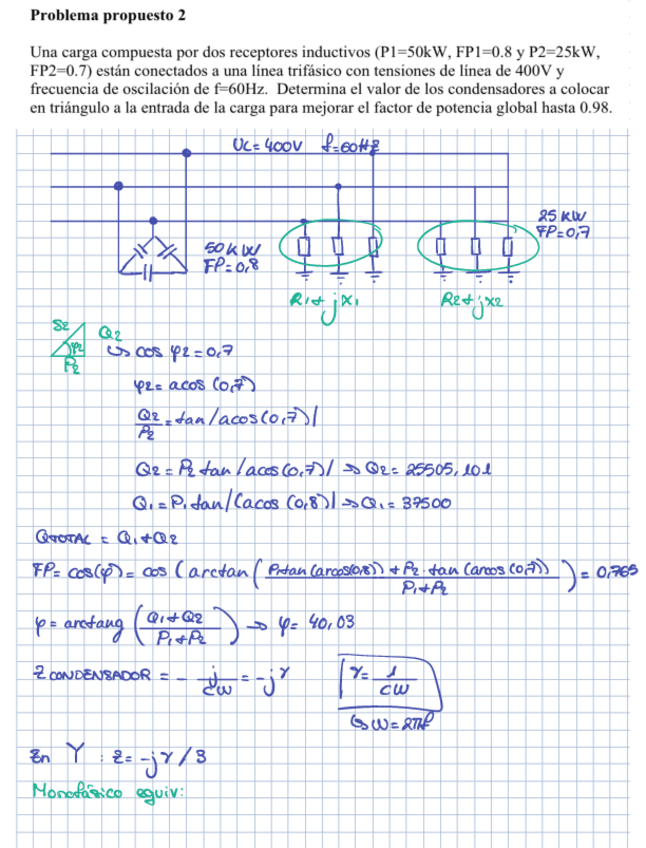 Problema propuesto 2
Una carga compuesta por dos receptores inductivos (P1=50kW, FP1=0.8 y P2=25kW,
FP2=0.7) están conectados a una línea trifásico con tensiones de línea de 400V y
frecuencia de oscilación de f=60Hz. Determina el valor de los condensadores a colocar
en triángulo a la entrada de la carga para mejorar el factor de potencia global hasta 0.98.
UL=400V f=60Hz
50kW
FP=0,8
25 KW
FP=0,7
R1+jX1
R2+jX2
S2
Q2
φ2
P2
↳ cos φ2=0,7
φ2= acos (0,7)
Q2/P2 = tan/acos(0,7)|
Q2= P2 tan/acos(0,7)/ => Q2= 25505,101
Q1=P1 tan/(acos (0,8)| => Q1= 37500
QTOTAL = Q1+Q2
FP= cos(φ)= cos (arctan( P1tan(arcos(0,8)) + P2·tan(arcos(0,7)) / P1+P2 ) = 0,765
φ= arctang (Q1+Q2 / P1+P2) -> φ= 40,03
Z CONDENSADOR = - j/CW = -jγ
γ= 1/CW
↳ W=2πf
En Y : Z= -jγ/3
Monofásico equiv: